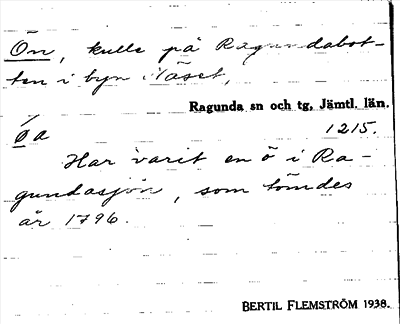 Ön, kulle på Ragundabot-
ten i byn Näset,
Ragunda sn och tg, Jämtl. län.
1215.
Har varit en ö i Ra-
gundasjön, som tömdes
år 1796.
BERTIL FLEMSTRÖM 1938.